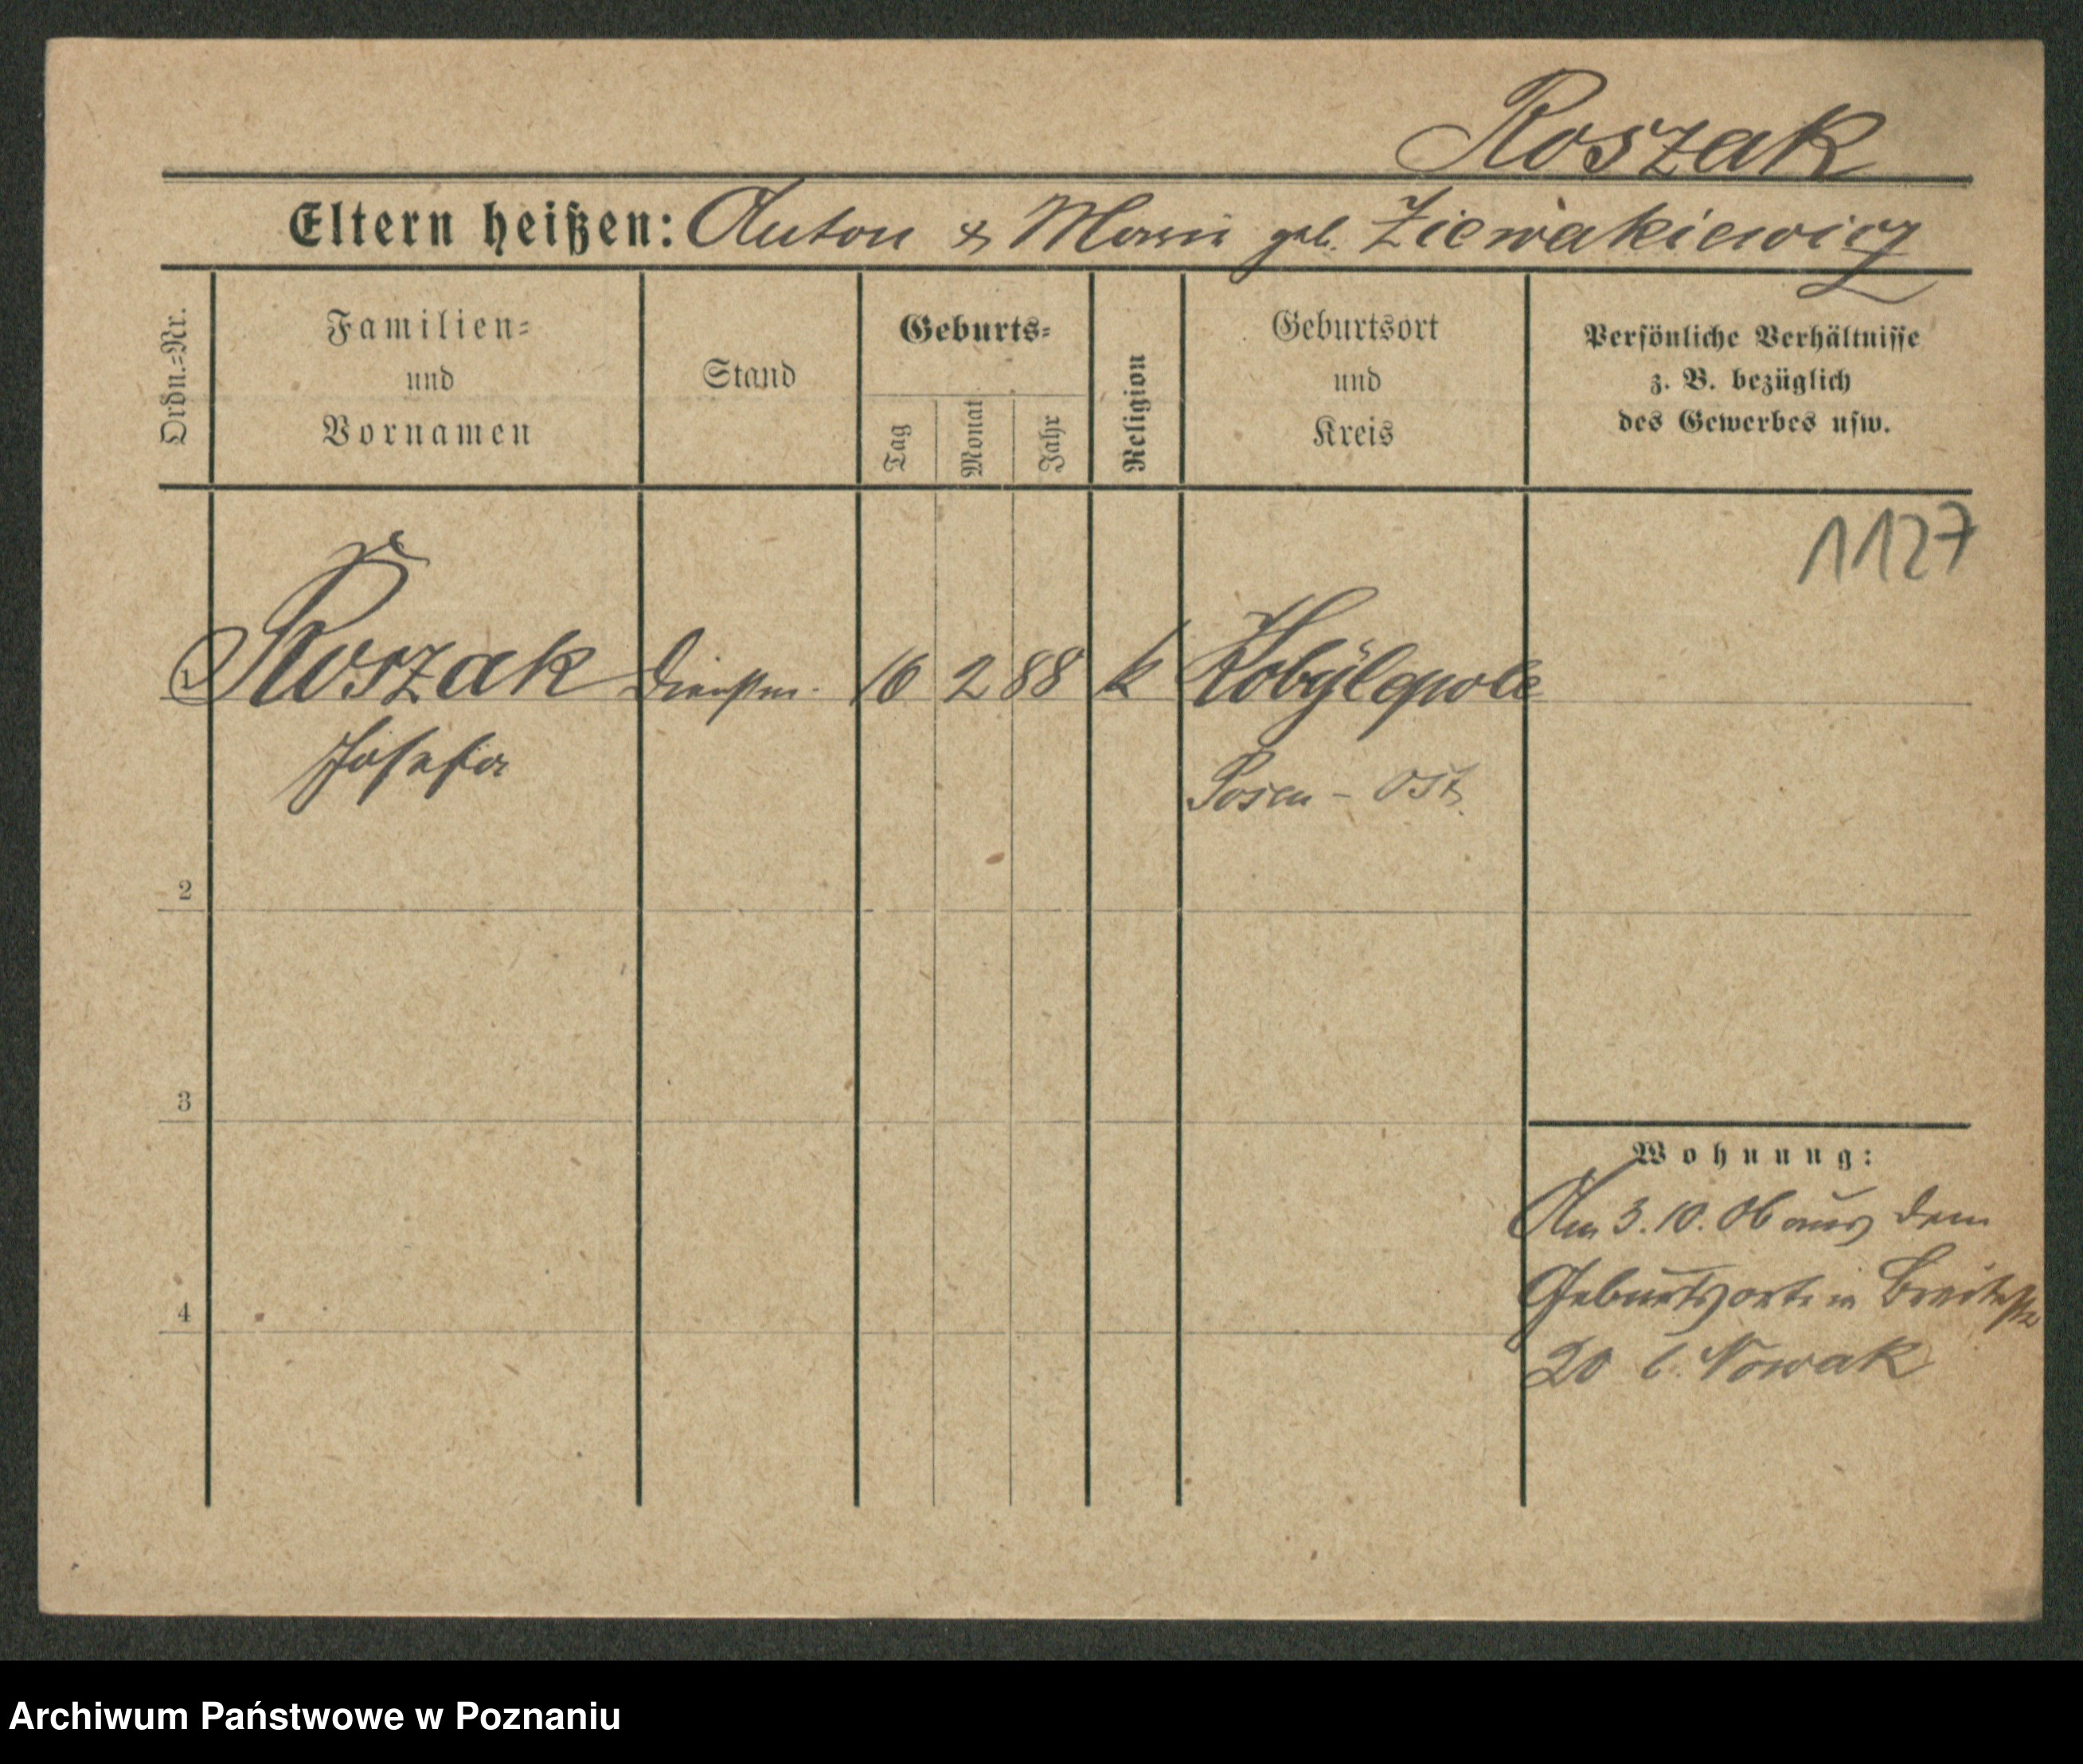 Roszak
Eltern heißen: Anton & Marie geb. Ziewakiewicz
Ordn.-Nr.
Familien-
und
Vornamen
Stand
Geburts-
Tag
Monat
Jahr
Religion
Geburtsort
und
Kreis
Persönliche Verhältnisse
z. B. bezüglich
des Gewerbes usw.
1127
1 Roszak Dienstm. 16 2 88 k Kobylepole
Josefa
Posen - Ost.
2
3
4
Wohnung:
Am 3.10.06 aus dem
Geburtsorte in Breitestr
20 b. Nowak
Archiwum Państwowe w Poznaniu